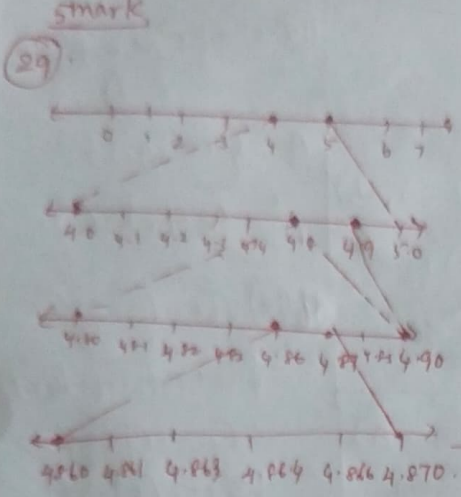 5mark
29.
0 1 2 3 4 5 6 7
4.0 4.1 4.2 4.3 4.4 4.8 4.9 5.0
4.80 4.81 4.82 4.83 4.86 4.87 4.90
4.860 4.861 4.863 4.864 4.866 4.870.